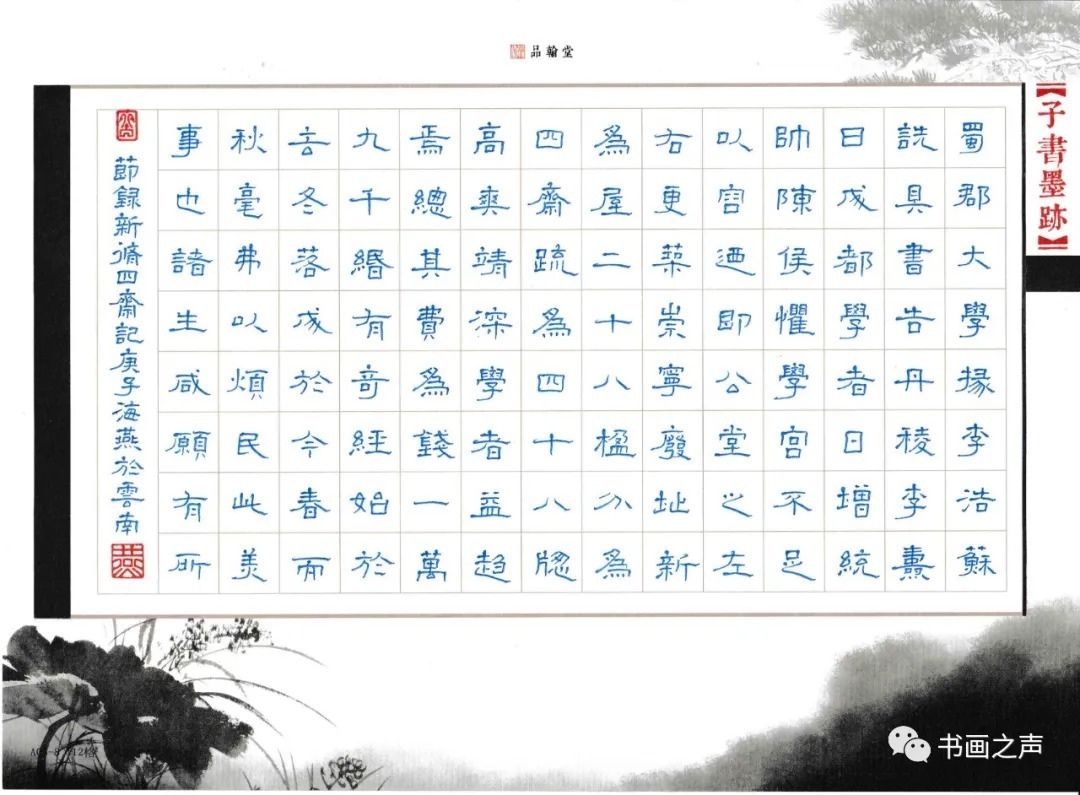 品翰堂
【子書墨跡】
蜀郡大學掾李浩蘇
詵具書告丹稜李燾
日成都學者日增統
帥陳侯懼學宮不足
以容迺即公堂之左
右更築崇寧廢址新
為屋二十八楹分為
四齋疏為四十八牕
高爽靖深學者益趨
焉總其費為錢一萬
九千緡有奇經始於
去冬落成於今春而
秋毫弗以煩民此美
事也諸生咸願有所
節録新脩四齋記庚子海燕於雲南
燕
书画之声